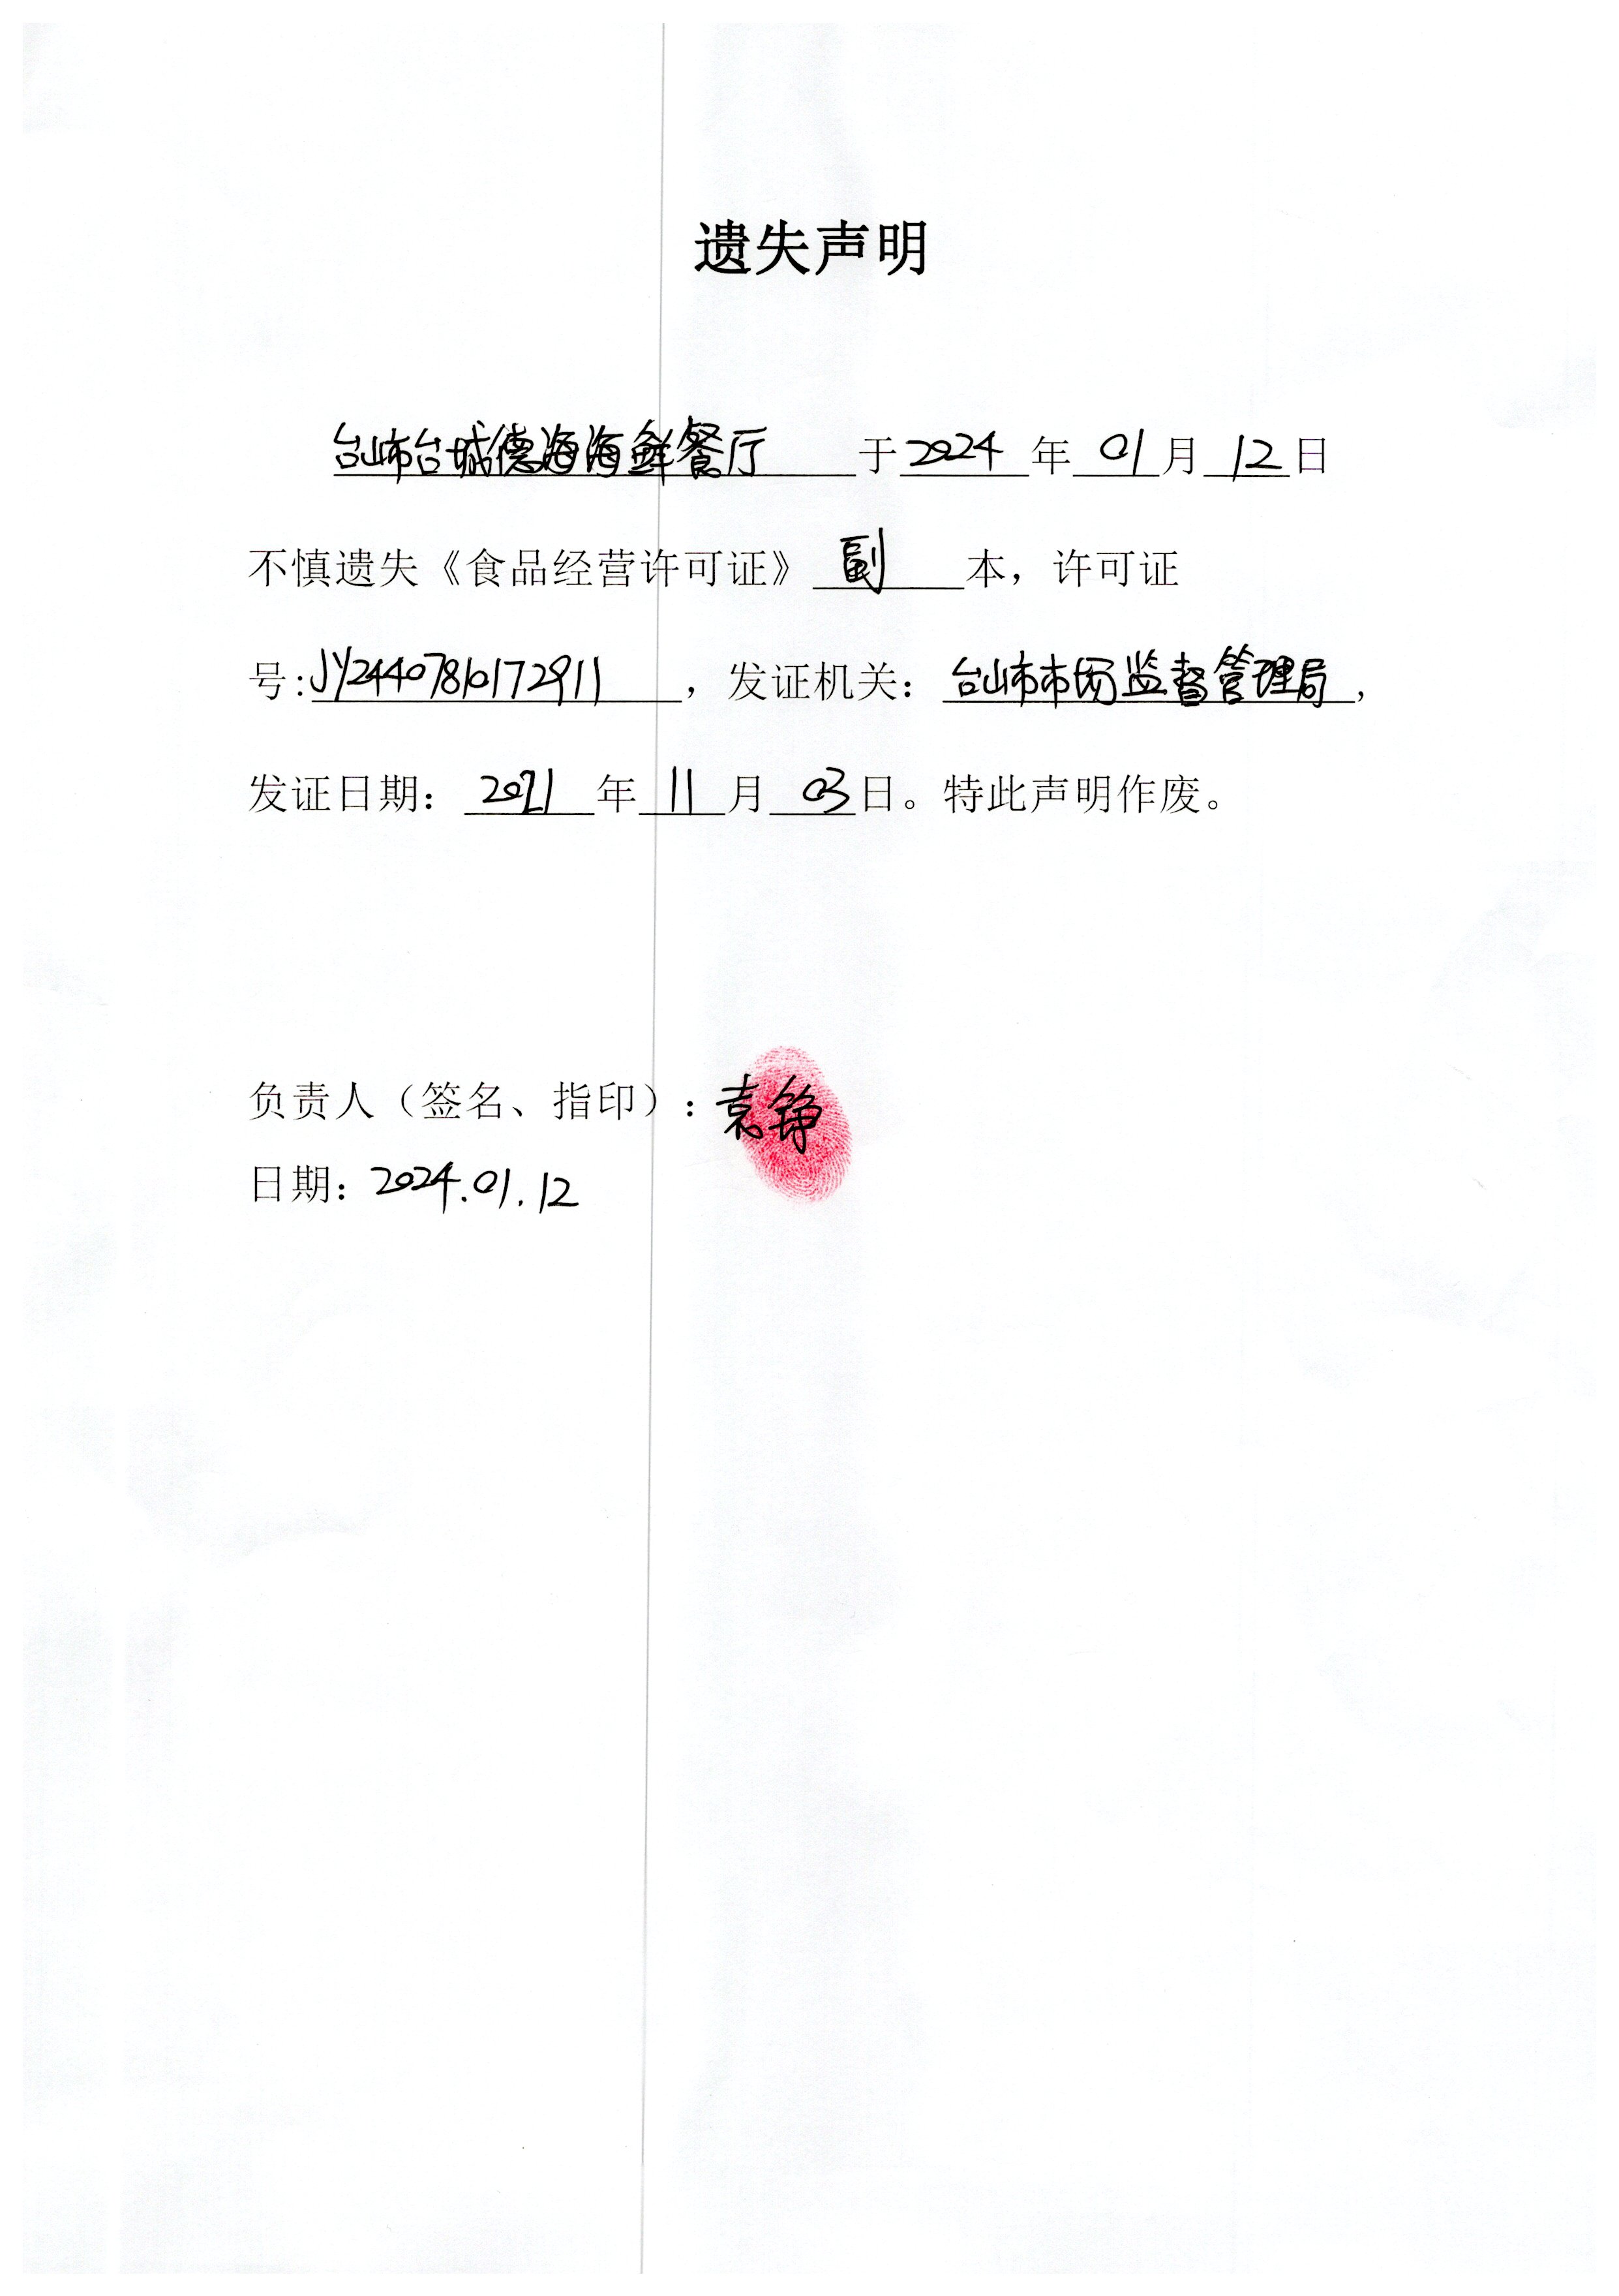 遗失声明
台山市台城德海海鲜餐厅 于 2024 年 01 月 12 日
不慎遗失《食品经营许可证》 副 本，许可证
号:JY24407810172911 ，发证机关：台山市市场监督管理局，
发证日期：2021 年 11 月 03 日。特此声明作废。
负责人（签名、指印）：袁铮
日期：2024.01.12